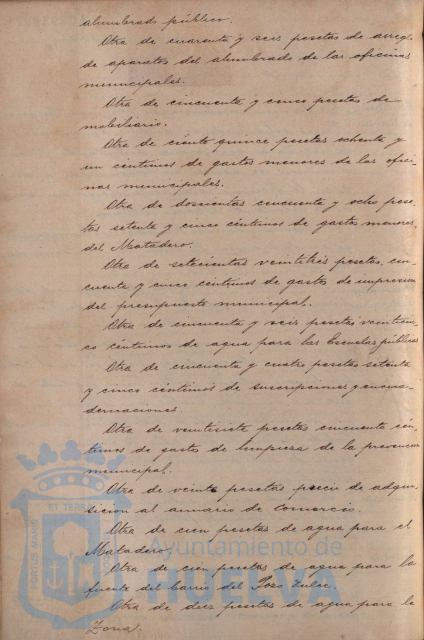 alumbrado público.
Otra de cuarenta y seis pesetas de arreglo
de aparatos del alumbrado de las oficinas
municipales.
Otra de cincuenta y cinco pesetas de
mobiliario.
Otra de ciento quince pesetas ochenta y
un centimos de gastos menores de las ofici-
nas municipales.
Otra de doscientas cincuenta y ocho pese-
tas setenta y cinco céntimos de gastos menores
del Matadero.
Otra de setecientas veintitrés pesetas, cin-
cuenta y cinco céntimos de gastos de impresion
del presupuesto municipal.
Otra de cincuenta y seis pesetas veinticin-
co céntimos de agua para las Escuelas públicas
Otra de cincuenta y cuatro pesetas setenta
y cinco céntimos de suscripciones y encua-
dernaciones.
Otra de veintisiete pesetas cincuenta cén-
timos de gastos de limpieza de la prevencion
municipal.
Otra de veinte pesetas precio de adqui-
sicion al anuario de Comercio.
Otra de cien pesetas de agua para el
Matadero.
Otra de cien pesetas de agua para la
fuente del barrio del Pozo Dulce.
Otra de diez pesetas de agua para la
Zona.
Ayuntamiento de
HUELVA
PORTUS MARIS ET TERRAE